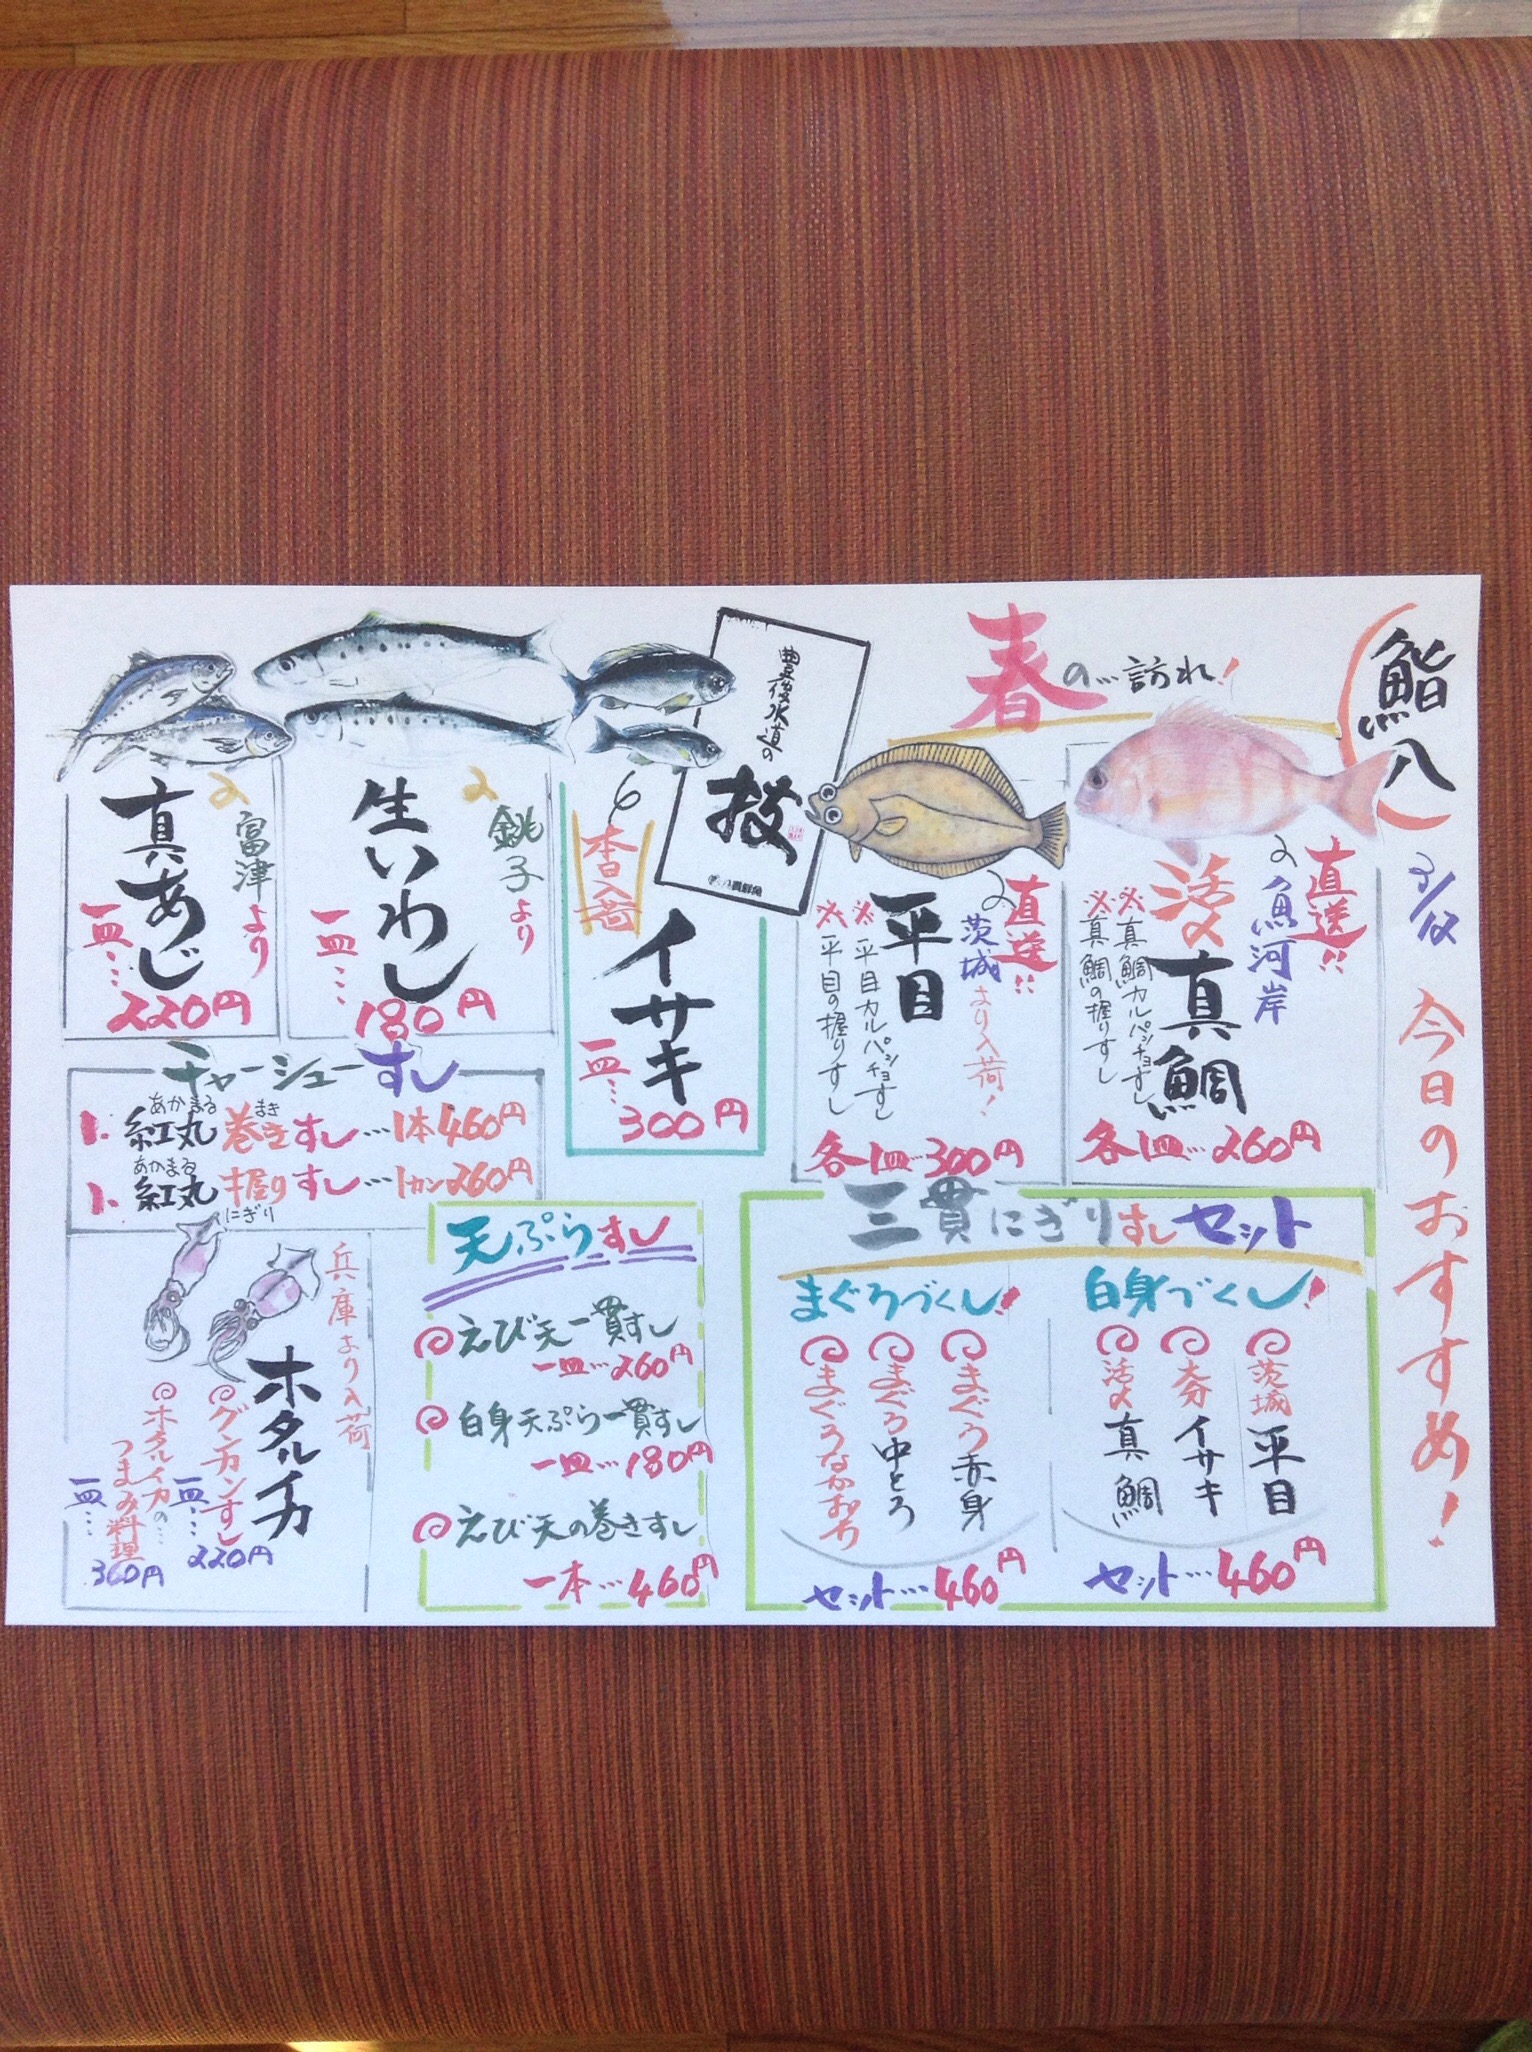 鮨八
3/12 今日のおすすめ!
春の…訪れ!
直送!!
魚河岸
活〆真鯛
※真鯛カルパッチョすし
※真鯛の握りすし
各1皿…260円
直送!!
茨城より入荷!
平目
※平目カルパッチョすし
※平目の握りすし
各1皿…300円
豊後水道の
技
本日入荷
イサキ
一皿…300円
銚子より
生いわし
一皿…180円
富津より
真あじ
一皿…220円
チャーシューすし
1. 紅丸巻きすし…1本460円
あかまる まき
1. 紅丸握りすし…1カン260円
あかまる にぎり
三貫にぎりすしセット
白身づくし!
茨城 平目
大分 イサキ
活〆 真鯛
セット…460円
まぐろづくし!
まぐろ赤身
まぐろ中とろ
まぐろなかおち
セット…460円
天ぷらすし
えび天一貫すし
一皿…260円
白身天ぷら一貫すし
一皿…180円
えび天の巻きすし
一本…460円
兵庫より入荷
ホタルイカ
グンカンすし
一皿…220円
ホタルイカの…
つまみ料理
一皿…360円